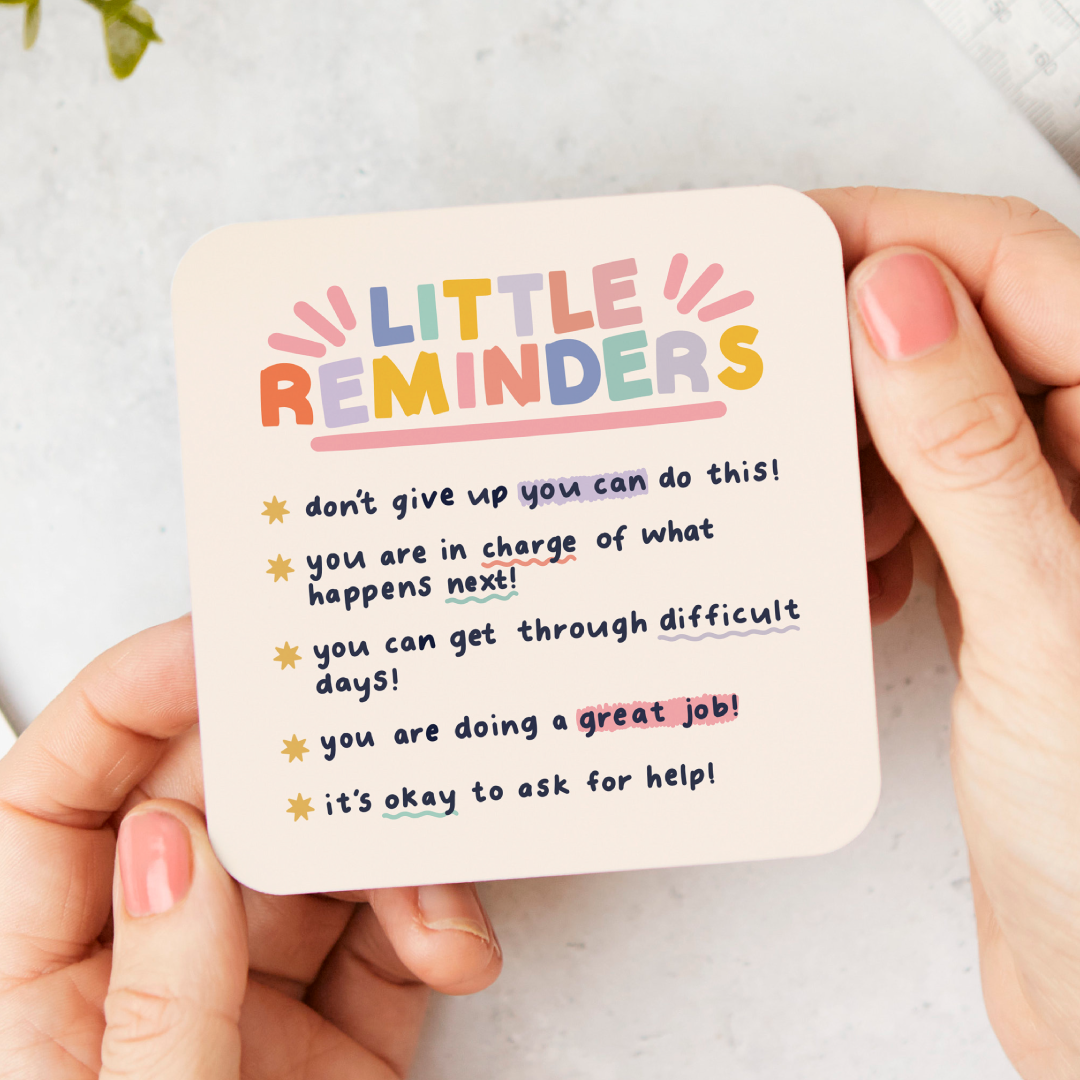 LITTLE
REMINDERS
don't give up you can do this!
you are in charge of what
happens next!
you can get through difficult
days!
you are doing a great job!
it's okay to ask for help!
160